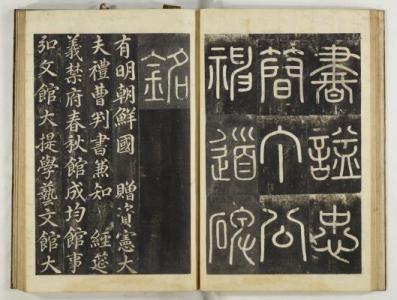 書諡忠
簡丁公
神道碑
銘
有明朝鮮國 贈資憲大
夫禮曹判書兼知 經筵
義禁府春秋館成均館事
弘文館大提學藝文館大